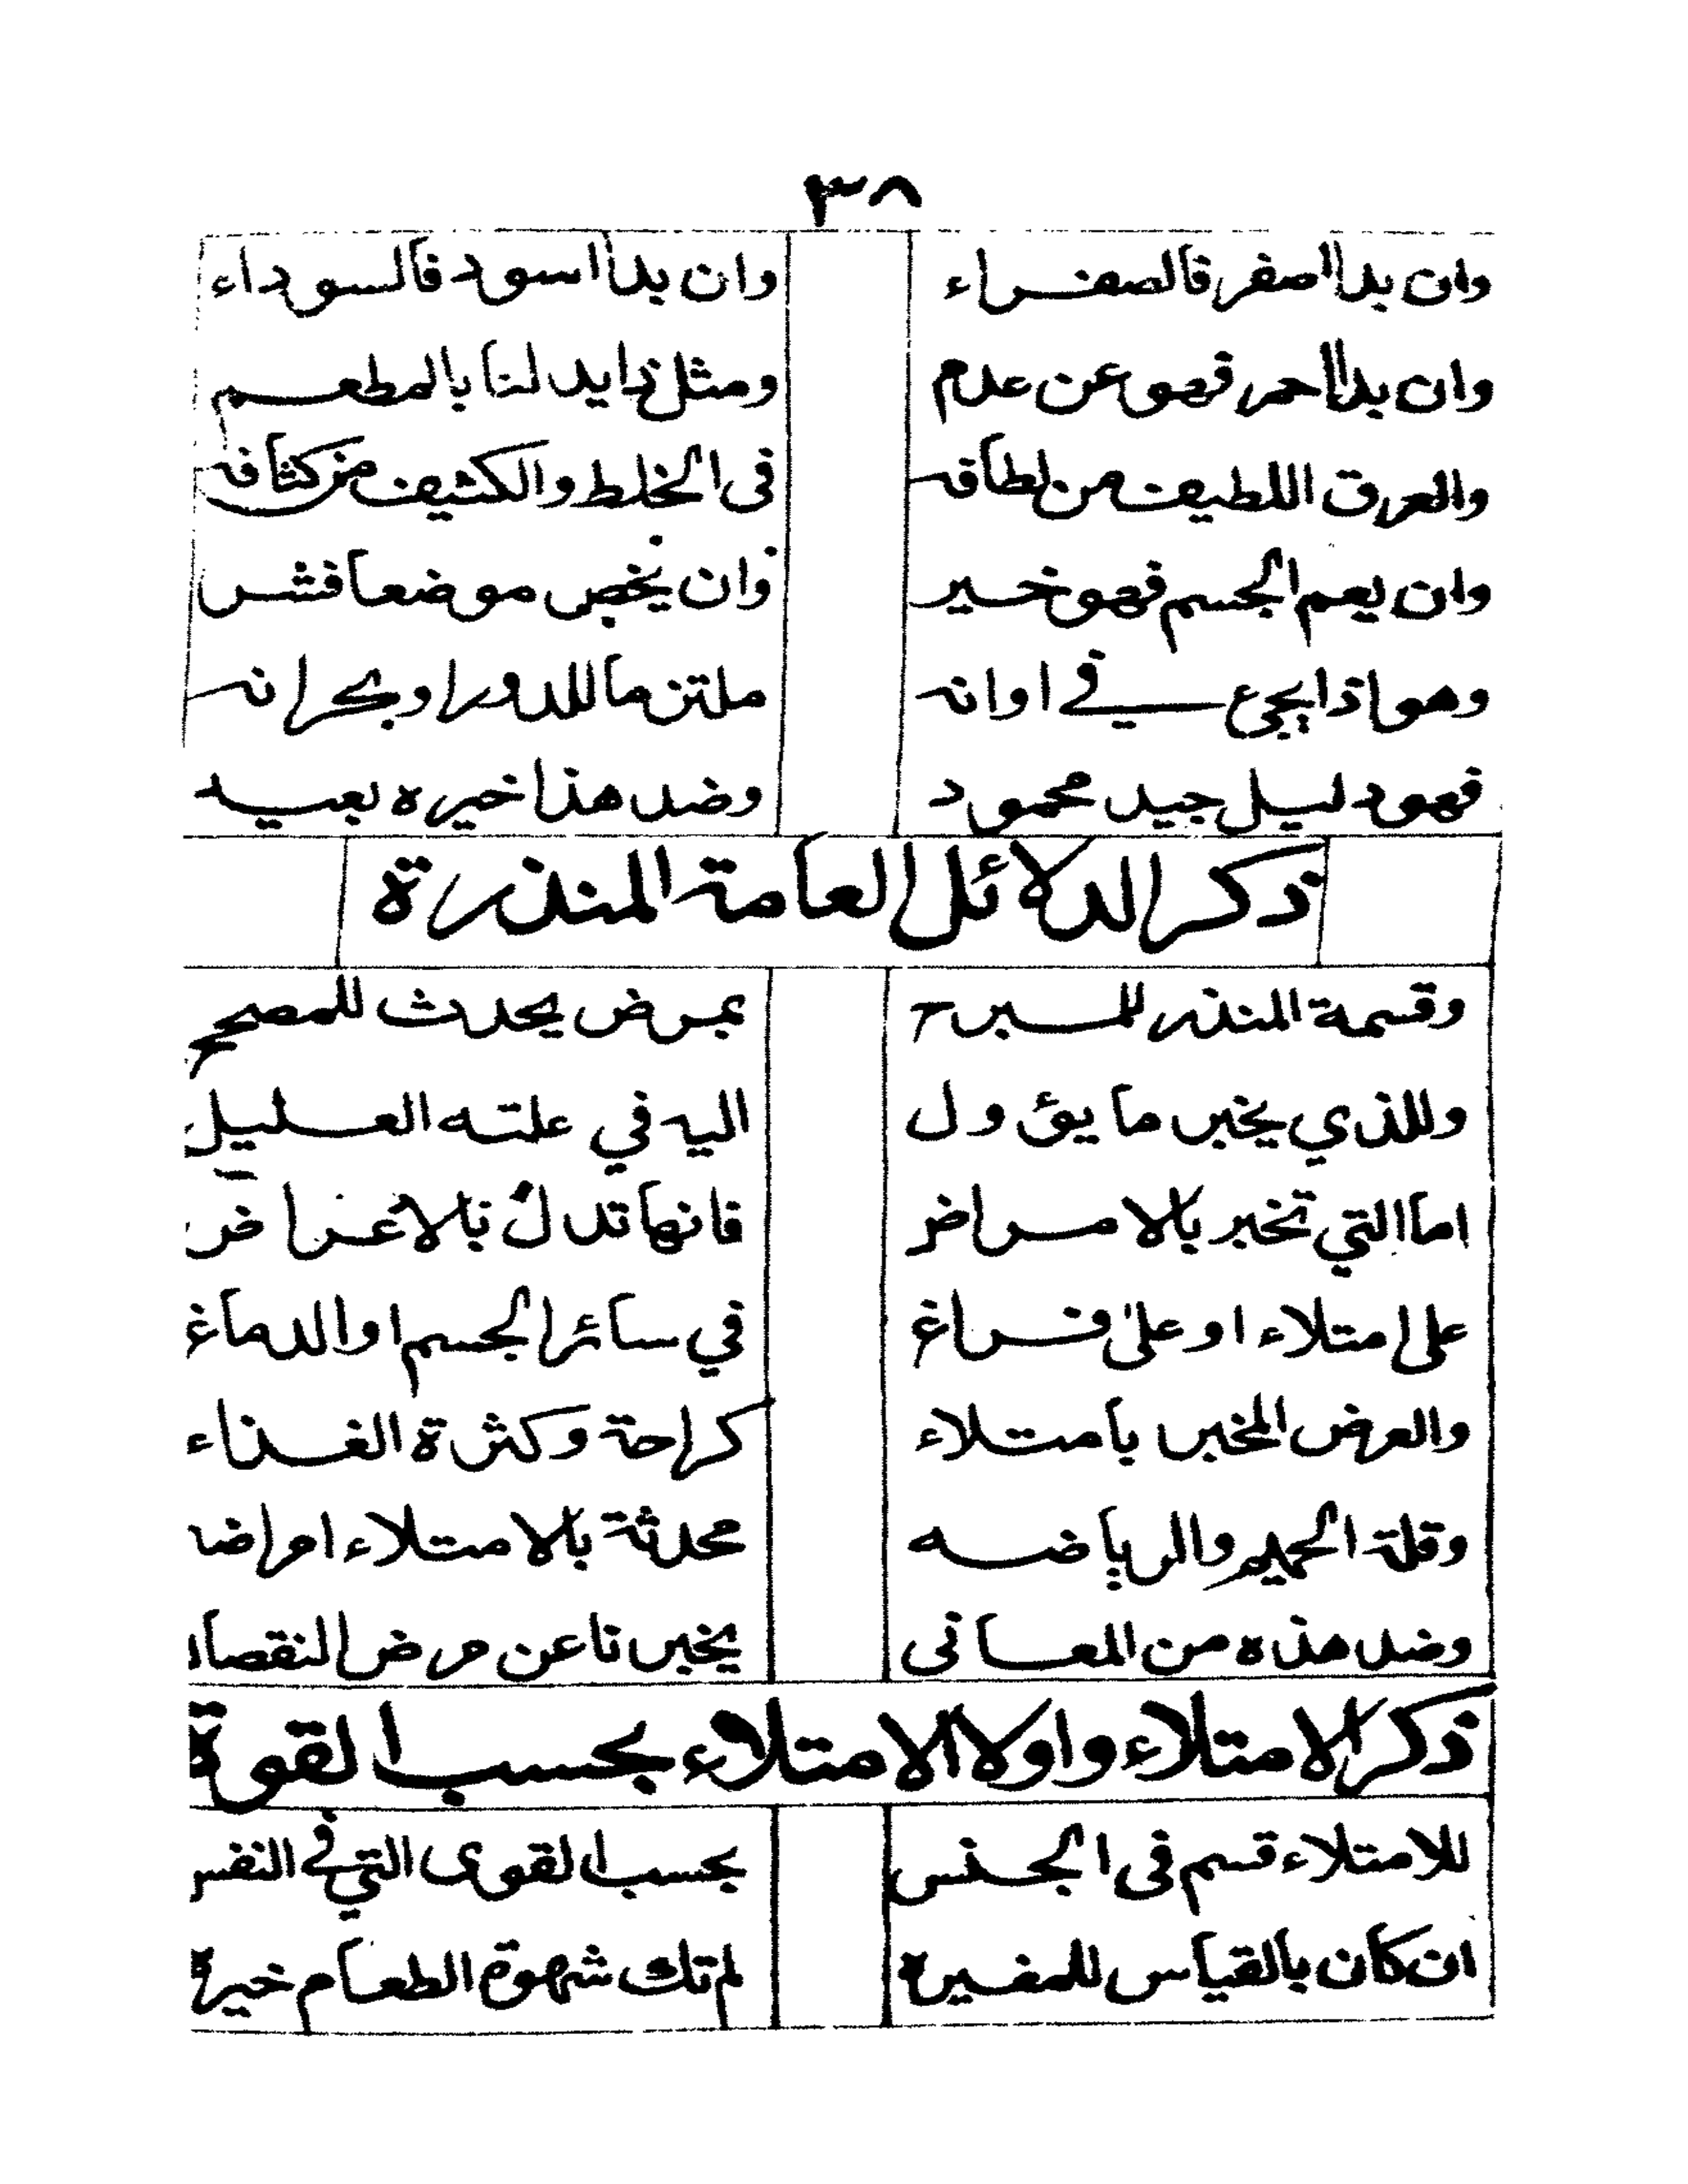 ٣٨
وان بدا اصفر فالصفراء وان بدا اسود فالسوداء
وان بدا احمر فهو عن عدم ومثل ذا يبد لنا بالمطعم
والعرق اللطيف من لطافه في الخلط والكثيف من كثافه
وان يعم الجسم فهو خير وان يخص موضعا فشر
وهو اذا يجيء في اوانه ملتزما للدور او بحرانه
فهو دليل جيد محمود وضد هذا خيره بعيد
ذكر الدلائل العامة المنذرة
وقسمة المنذر للمسبرح بمرض يحدث للمصحح
وللذي يخبر ما يؤول اليه في علته العليل
اما التي تخبر بالامراض فانها تدل بالاعراض
على امتلاء او على فراغ في سائر الجسم او الدماغ
والعرض المخبر بامتلاء كراحة وكثرة الغذاء
وقلة الحميم والرياضه محدثة بالامتلاء امراضه
وضد هذه من المعاني يخبرنا عن مرض النقصان
ذكر الامتلاء واولا الامتلاء بحسب القوة
للامتلاء قسم في الجنس بحسب القوى التي في النفس
ان كان بالقياس للمغيره لم تك شهوة الطعام خيرة